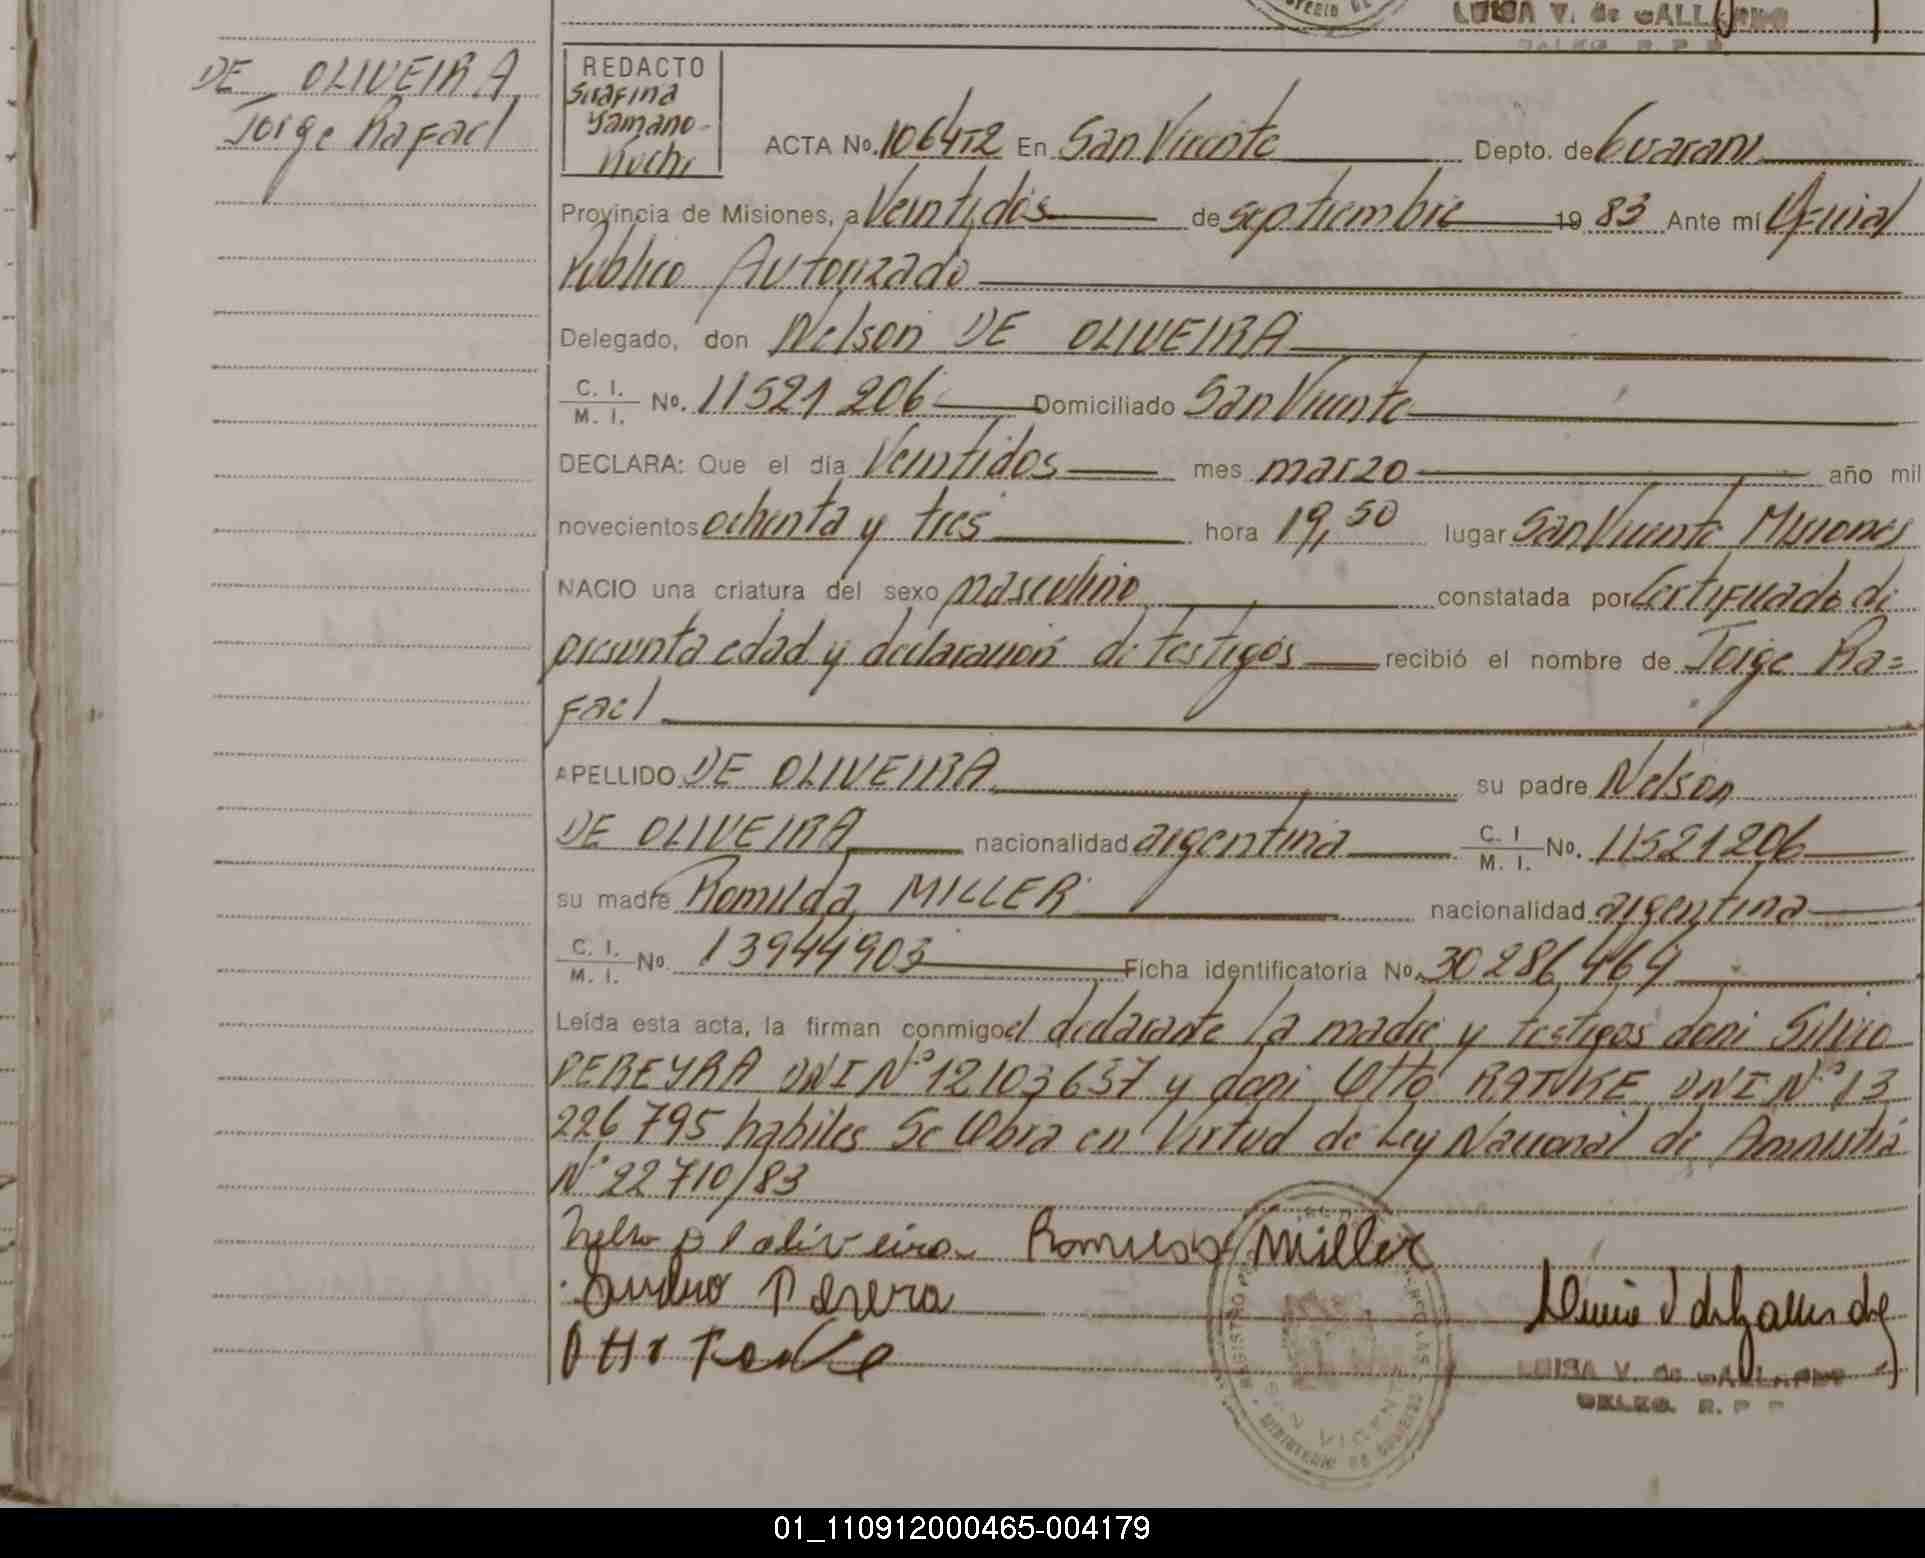 LUISA V. de GALLARDO
DELEG. R. P. P.
DE OLIVEIRA
Jorge Rafael
REDACTO
Serafina
Yamano-
Kuchi
ACTA No. 106472 En San Vicente Depto. de Guarani
Provincia de Misiones, a Veintidós de septiembre 19 83 Ante mí Oficial
Público Autorizado
Delegado, don Nelson DE OLIVEIRA
C. I. / M. I. No. 11521206 Domiciliado San Vicente
DECLARA: Que el día Veintidos mes marzo año mil
novecientos ochenta y tres hora 19,50 lugar San Vicente Misiones
NACIO una criatura del sexo masculino constatada por Certificado de
presunta edad y declaración de testigos recibió el nombre de Jorge Ra=
fael
APELLIDO DE OLIVEIRA su padre Nelson
DE OLIVEIRA nacionalidad argentina C. I / M. I. No. 11521206
su madre Romilda MILLER nacionalidad argentina
C. I. / M. I. No. 13944903 Ficha identificatoria No. 30286469
Leída esta acta, la firman conmigo el declarante la madre y testigos doni Silvio
PEREYRA DNI N° 12103637 y doni Otto RATUKE DNI N° 13
226795 habiles Se Obra en Virtud de Ley Nacional de Amnistia
N° 22710/83
Romilda Miller
Otto
SAN VICENTE
MINISTERIO DE GOBIERNO
LUISA V. de GALLARDO
DELEG. R. P. P.
01_110912000465-004179